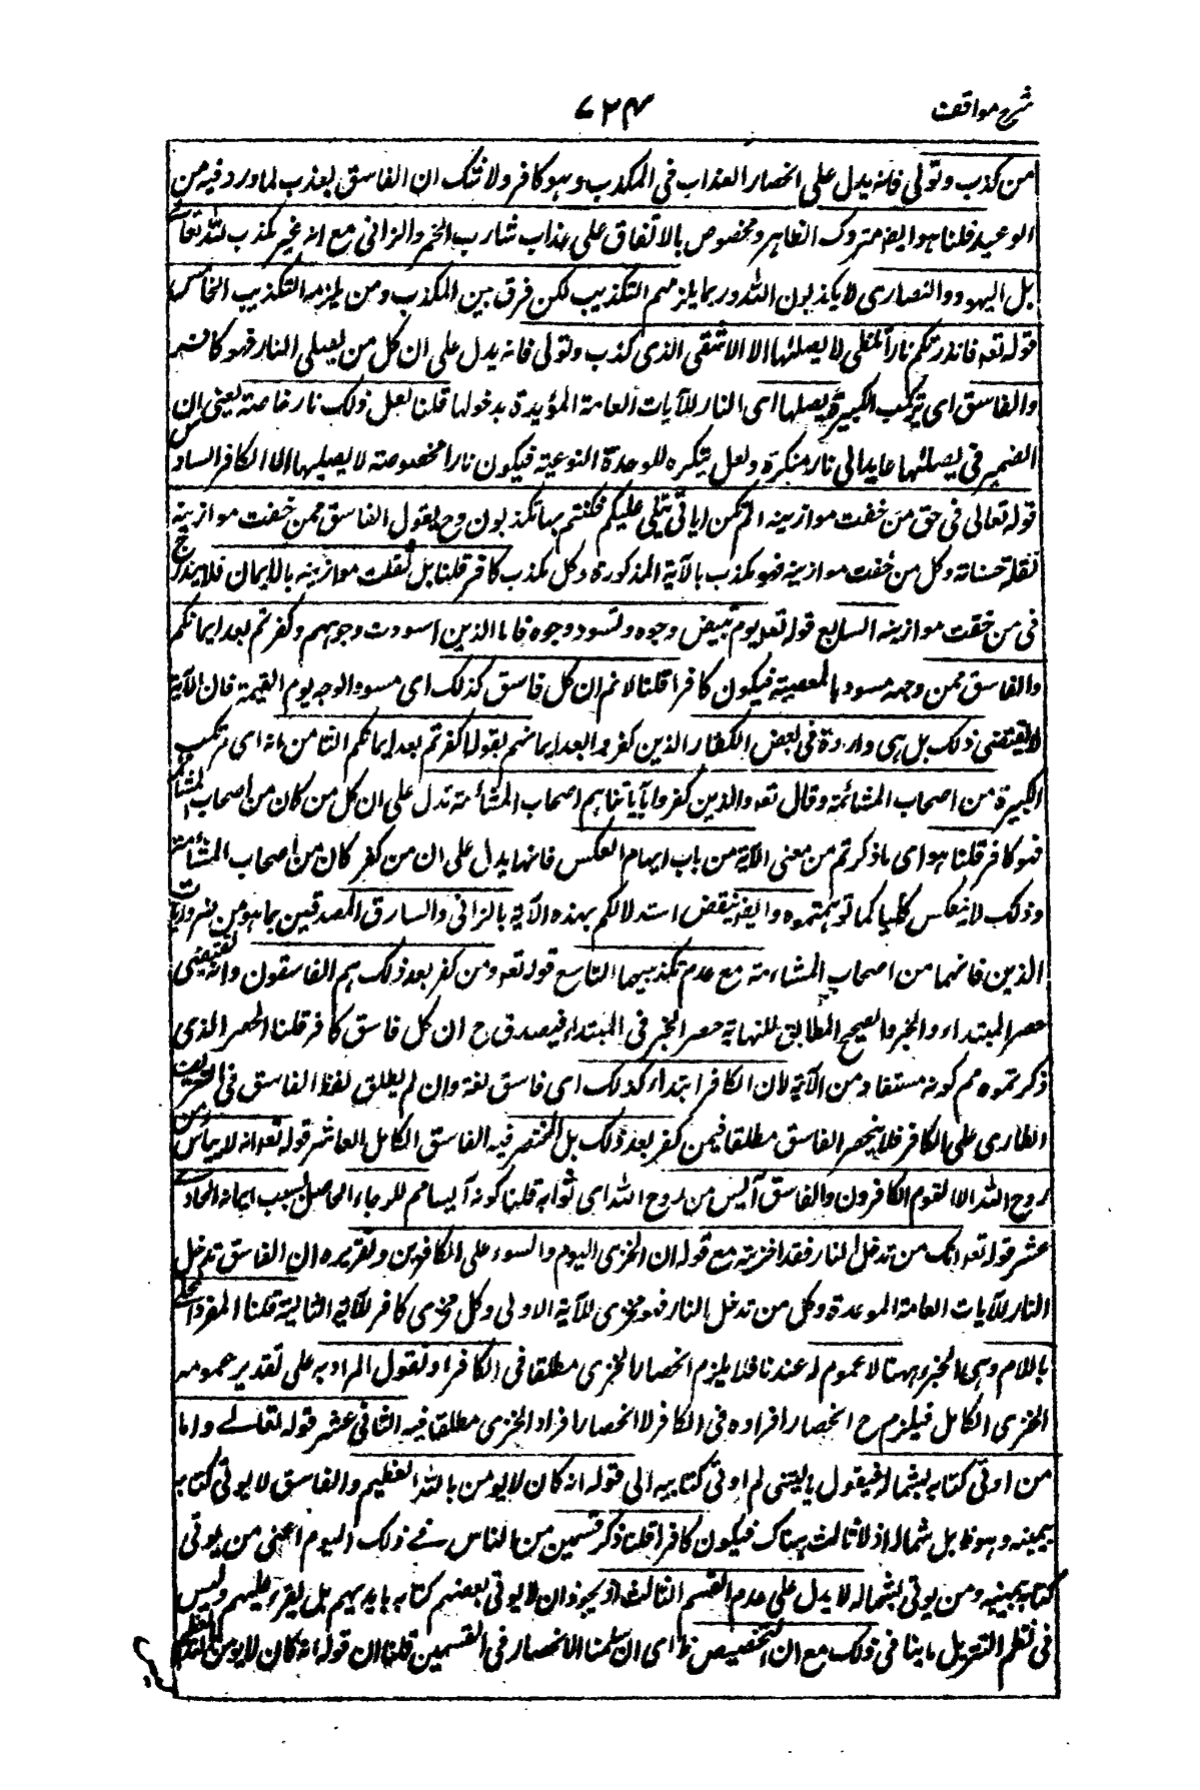 شرح مواقف
٧٢٤
من كذب وتولى فانه يدل على انحصار العذاب فى المكذب وهو كافر ولا شك ان الفاسق يعذب لما ورد فيه من
الوعيد قلنا هو ايضا متروك الظاهر ومخصوص بالاتفاق على عذاب شارب الخمر والزانى مع انه غير مكذب لله تعالى
بل اليهود والنصارى لا يكذبون الله وربما يلزمهم التكذيب لكن فرق بين المكذب ومن يلزمه التكذيب الخامس
قوله تعه فانذرتكم نارا تلظى لا يصلها الا الاشقى الذى كذب وتولى فانه يدل على ان كل من يصلى النار فهو كافر
والفاسق اى مرتكب الكبيرة يصلها اى النار للآيات العامة المؤيدة بدخولها قلنا لعل ذلك نار خاصة يعنى ان
الضمير فى يصلها عايد الى نار منكرة ولعل تنكره للوحدة النوعية فيكون نارا مخصوصة لا يصليها الا الكافر السادس
قوله تعالى فى حق من خفت موازينه الم تكن اياتى تتلى عليكم فكنتم بها تكذبون وح يقول الفاسق ممن خفت موازينه
لقلة حسناته وكل من خفت موازينه فهو مكذب بالآية المذكورة وكل مكذب كافر قلنا بل ثقلت موازينه بالايمان فلا يندرج
فى من خفت موازينه السابع قوله تعه يوم تبيض وجوه وتسود وجوه فاما الذين اسودت وجوههم وكفرتم بعد ايمانكم
والفاسق ممن وجهه مسود بالمعصية فيكون كافرا قلنا لا نم ان كل فاسق كذلك اى مسود الوجه يوم القيمة فان الآية
لا تقتضى ذلك بل هى واردة فى بعض الكفار الذين كفروا بعد ايمانهم بقوله اكفرتم بعد ايمانكم الثامن انه اى مرتكب
الكبيرة من اصحاب المشائمة وقال تعه والذين كفروا بآياتنا هم اصحاب المشائمة تدل على ان كل من كان من اصحاب المشائمة
فهو كافر قلنا هو اى ما ذكرتم من معنى الآية من باب ايهام العكس فانها يدل على ان من كفر كان من اصحاب المشائمة
وذلك لا ينعكس كليا كما توهمتموه وايضا ينقض استدلالكم بهذه الآية بالزانى والسارق المصدقين بما هو من ضروريات
الدين فانهما من اصحاب المشاءمة مع عدم تكذيبهما التاسع قوله تعه ومن كفر بعد ذلك هم الفاسقون وانه يقتضى
حصر المبتداء والخبر والصحيح المطابق للنهاية حصر الخبر فى المبتداء فيصدق ح ان كل فاسق كافر قلنا الحصر الذى
ذكرتموه مم كونه مستفاد من الآية لان الكافر ابتداء كذلك اى فاسق لغة وان لم يطلق لفظ الفاسق فى العرف
الطارى على الكافر فلا ينحصر الفاسق مطلقا فيمن كفر بعد ذلك بل المنحصر فيه الفاسق الكامل العاشر قوله تعه انه لا ييأس من
روح الله الا القوم الكافرون والفاسق آيس من روح الله اى ثوابه قلنا كونه آيسا مم للرجاء الحاصل بسبب ايمانه الحادى
عشر قوله تعه انك من تدخل النار فقد اخزيته مع قوله ان الخزى اليوم والسوء على الكافرين وتقريره ان الفاسق تدخل
النار للآيات العامة الموعدة وكل من تدخل النار فهو مخزى للآية الاولى وكل مخزى كافر للآية الثانية قلنا المفرد المحلى
باللام وهى الخزى ههنا لا عموم له عندنا فلا يلزم انحصار الخزى مطلقا فى الكافر او نقول المراد به على تقدير عمومه
الخزى الكامل فيلزم ح انحصار افراده فى الكافر لا انحصار افراد الخزى مطلقا فيه الثانى عشر قوله تعالى واما
من اوتى كتابه بشماله فيقول يا ليتنى لم اوتى كتابيه الى قوله انه كان لا يومن بالله العظيم والفاسق لا يوتى كتابه
بيمينه وهو ظ بل شماله اذ لا ثالث هناك فيكون كافرا قلنا ذكر قسمين من الناس فى ذلك اليوم اعنى من يوتى
كتابه بيمينه ومن يوتى بشماله لا يدل على عدم القسم الثالث اذ يجوز ان لا يوتى بعضهم كتابه بايديهم بل يقرء عليهم وليس
فى نظم التنزيل ما ينافى ذلك مع ان التخصيص ظ اى ان سلمنا الانحصار فى القسمين قلنا ان قوله انه كان لا يومن بالله العظيم